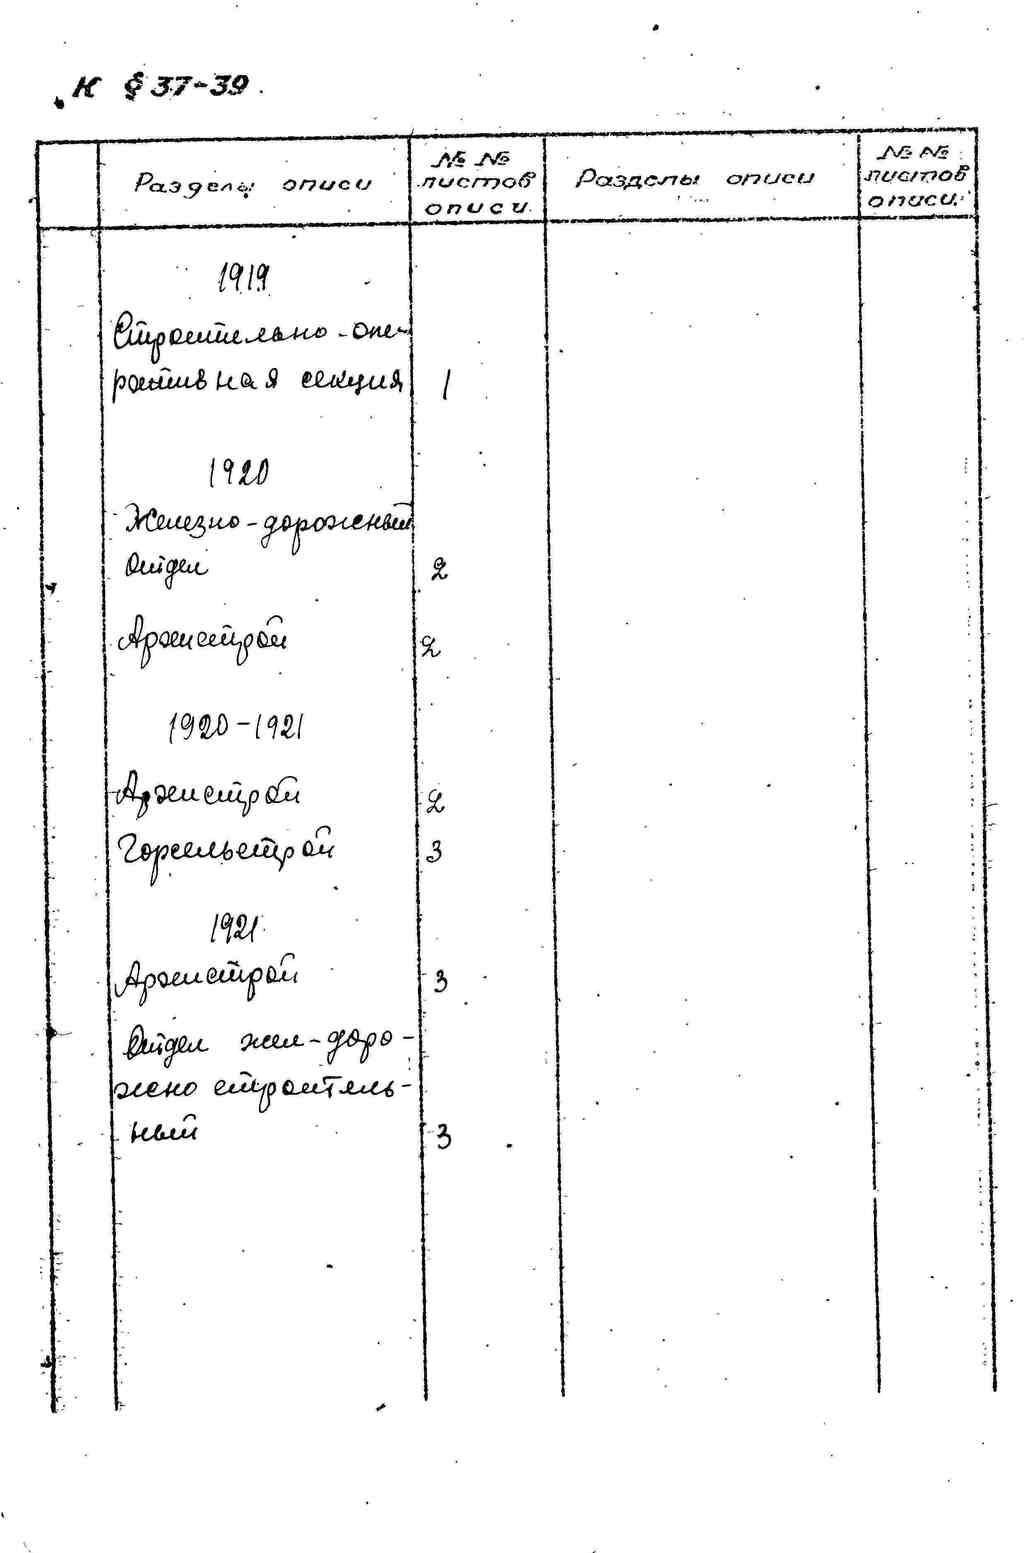 К § 37-39.
Разделы описи
№ №
листов
описи.
Разделы описи
№ №
листов
описи.
1919
Строительно-опе-
ративная секция 1
1920
Железно-дорожный
Отдел 2
Архистрой 2
1920-1921
Архистрой 2
Горсельстрой 3
1921
Архистрой 3
Отдел жел-доро-
жно строитель-
ный 3